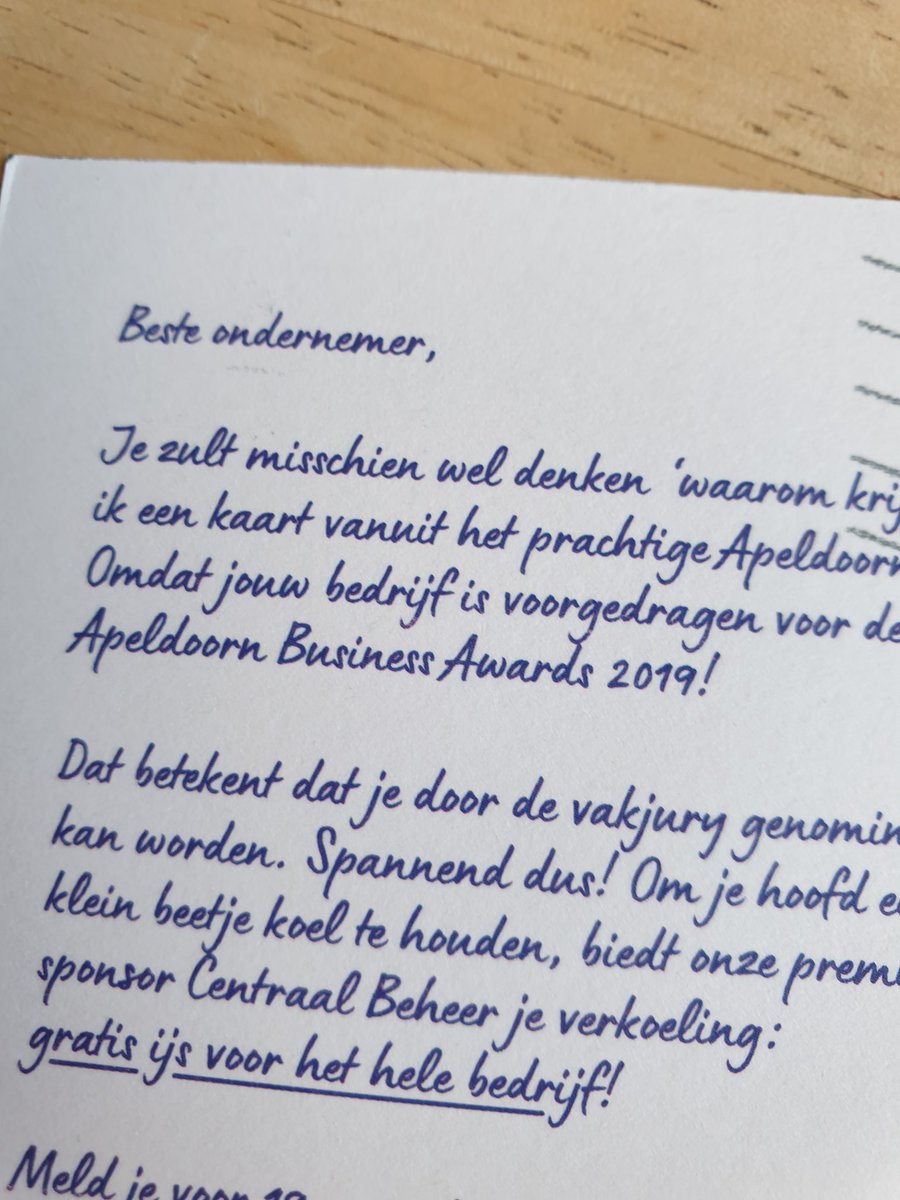 Beste ondernemer,
Je zult misschien wel denken ‘waarom krij
ik een kaart vanuit het prachtige Apeldoorn
Omdat jouw bedrijf is voorgedragen voor de
Apeldoorn Business Awards 2019!
Dat betekent dat je door de vakjury genomin
kan worden. Spannend dus! Om je hoofd e
klein beetje koel te houden, biedt onze premi
sponsor Centraal Beheer je verkoeling:
gratis ijs voor het hele bedrijf!
Meld je voor 18